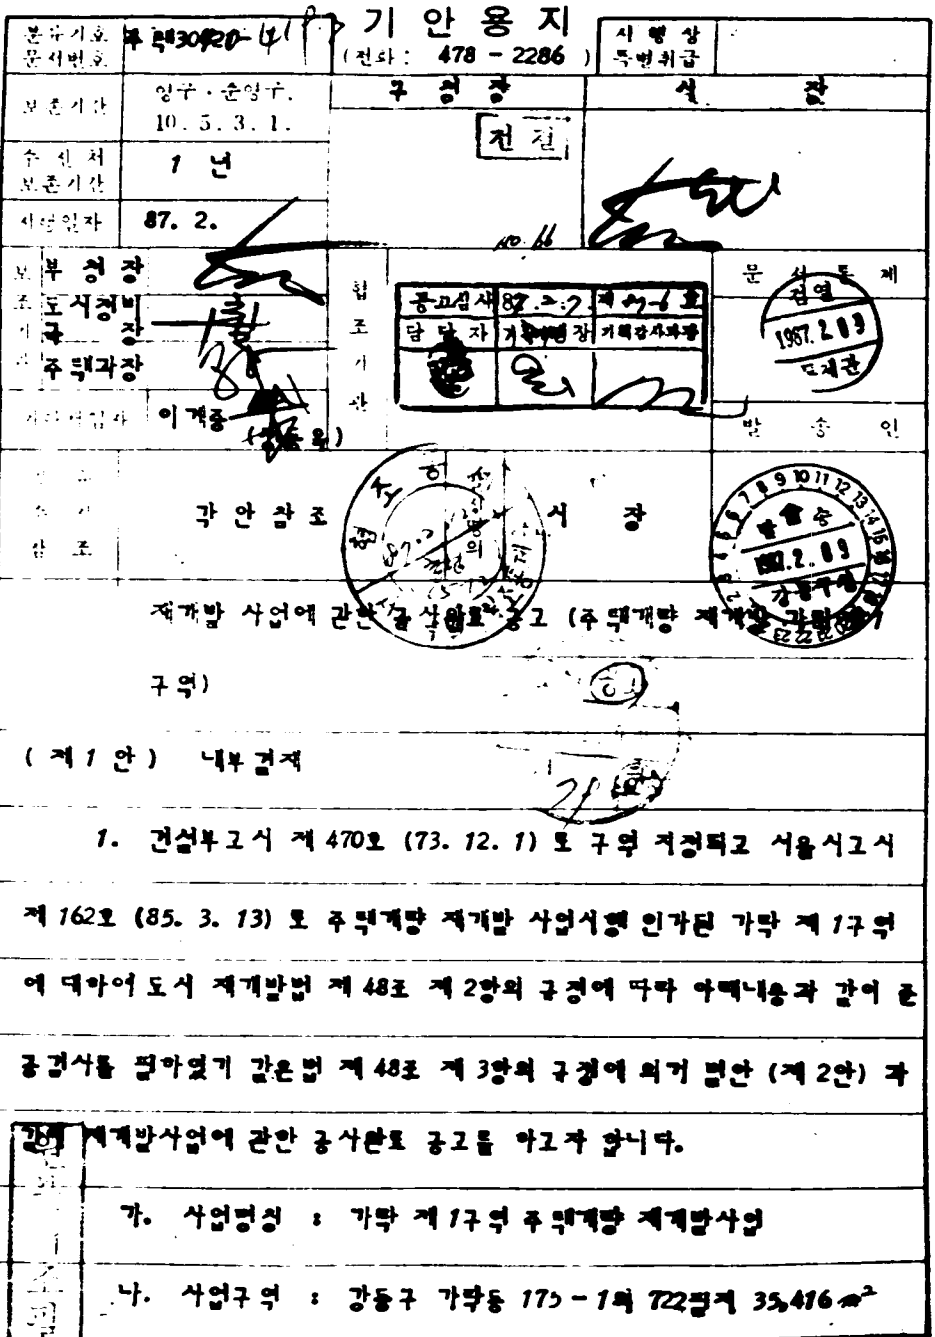 기 안 용 지
분류기호 문서번호 주택30420-
(전화 : 478 - 2286 )
시 행 상 특별취급
보존기간 영구 · 준영구. 10. 5. 3. 1.
구 청 장
전 결
수 신 처 보존기간 1 년
시행일자 87. 2.
No. 66
보 조 기 관
부 청 장
도시정비 국 장
주택과장
기안책임자 이계중
협 조 기 관
공고심사 제 87-6 호
담 당 자 장 기획감사과장
문 서 통 제
검열
1987. 2. 09
통제관
발 송 인
경 유 수 신 참 조
각 안 참 조
시 장
발 송
1987. 2. 09
강동구청
재개발 사업에 관한 공사완료 공고 (주택개량 재개발 가락
구역)
( 제 1 안 ) 내부결재
1. 건설부고시 제 470호 (73. 12. 1) 로 구역 지정되고 서울시고시
제 162호 (85. 3. 13) 로 주택개량 재개발 사업시행 인가된 가락 제 1구역
에 대하여 도시 재개발법 제 48조 제 2항의 규정에 따라 아래내용과 같이 준
공검사를 필하였기 같은법 제 48조 제 3항의 규정에 의거 별안 (제 2안) 과
같이 재개발사업에 관한 공사완료 공고를 하고자 합니다.
가. 사업명칭 : 가락 제 1구역 주택개량 재개발사업
나. 사업구역 : 강동구 가락동 175 - 1외 722필지 35,416 m²